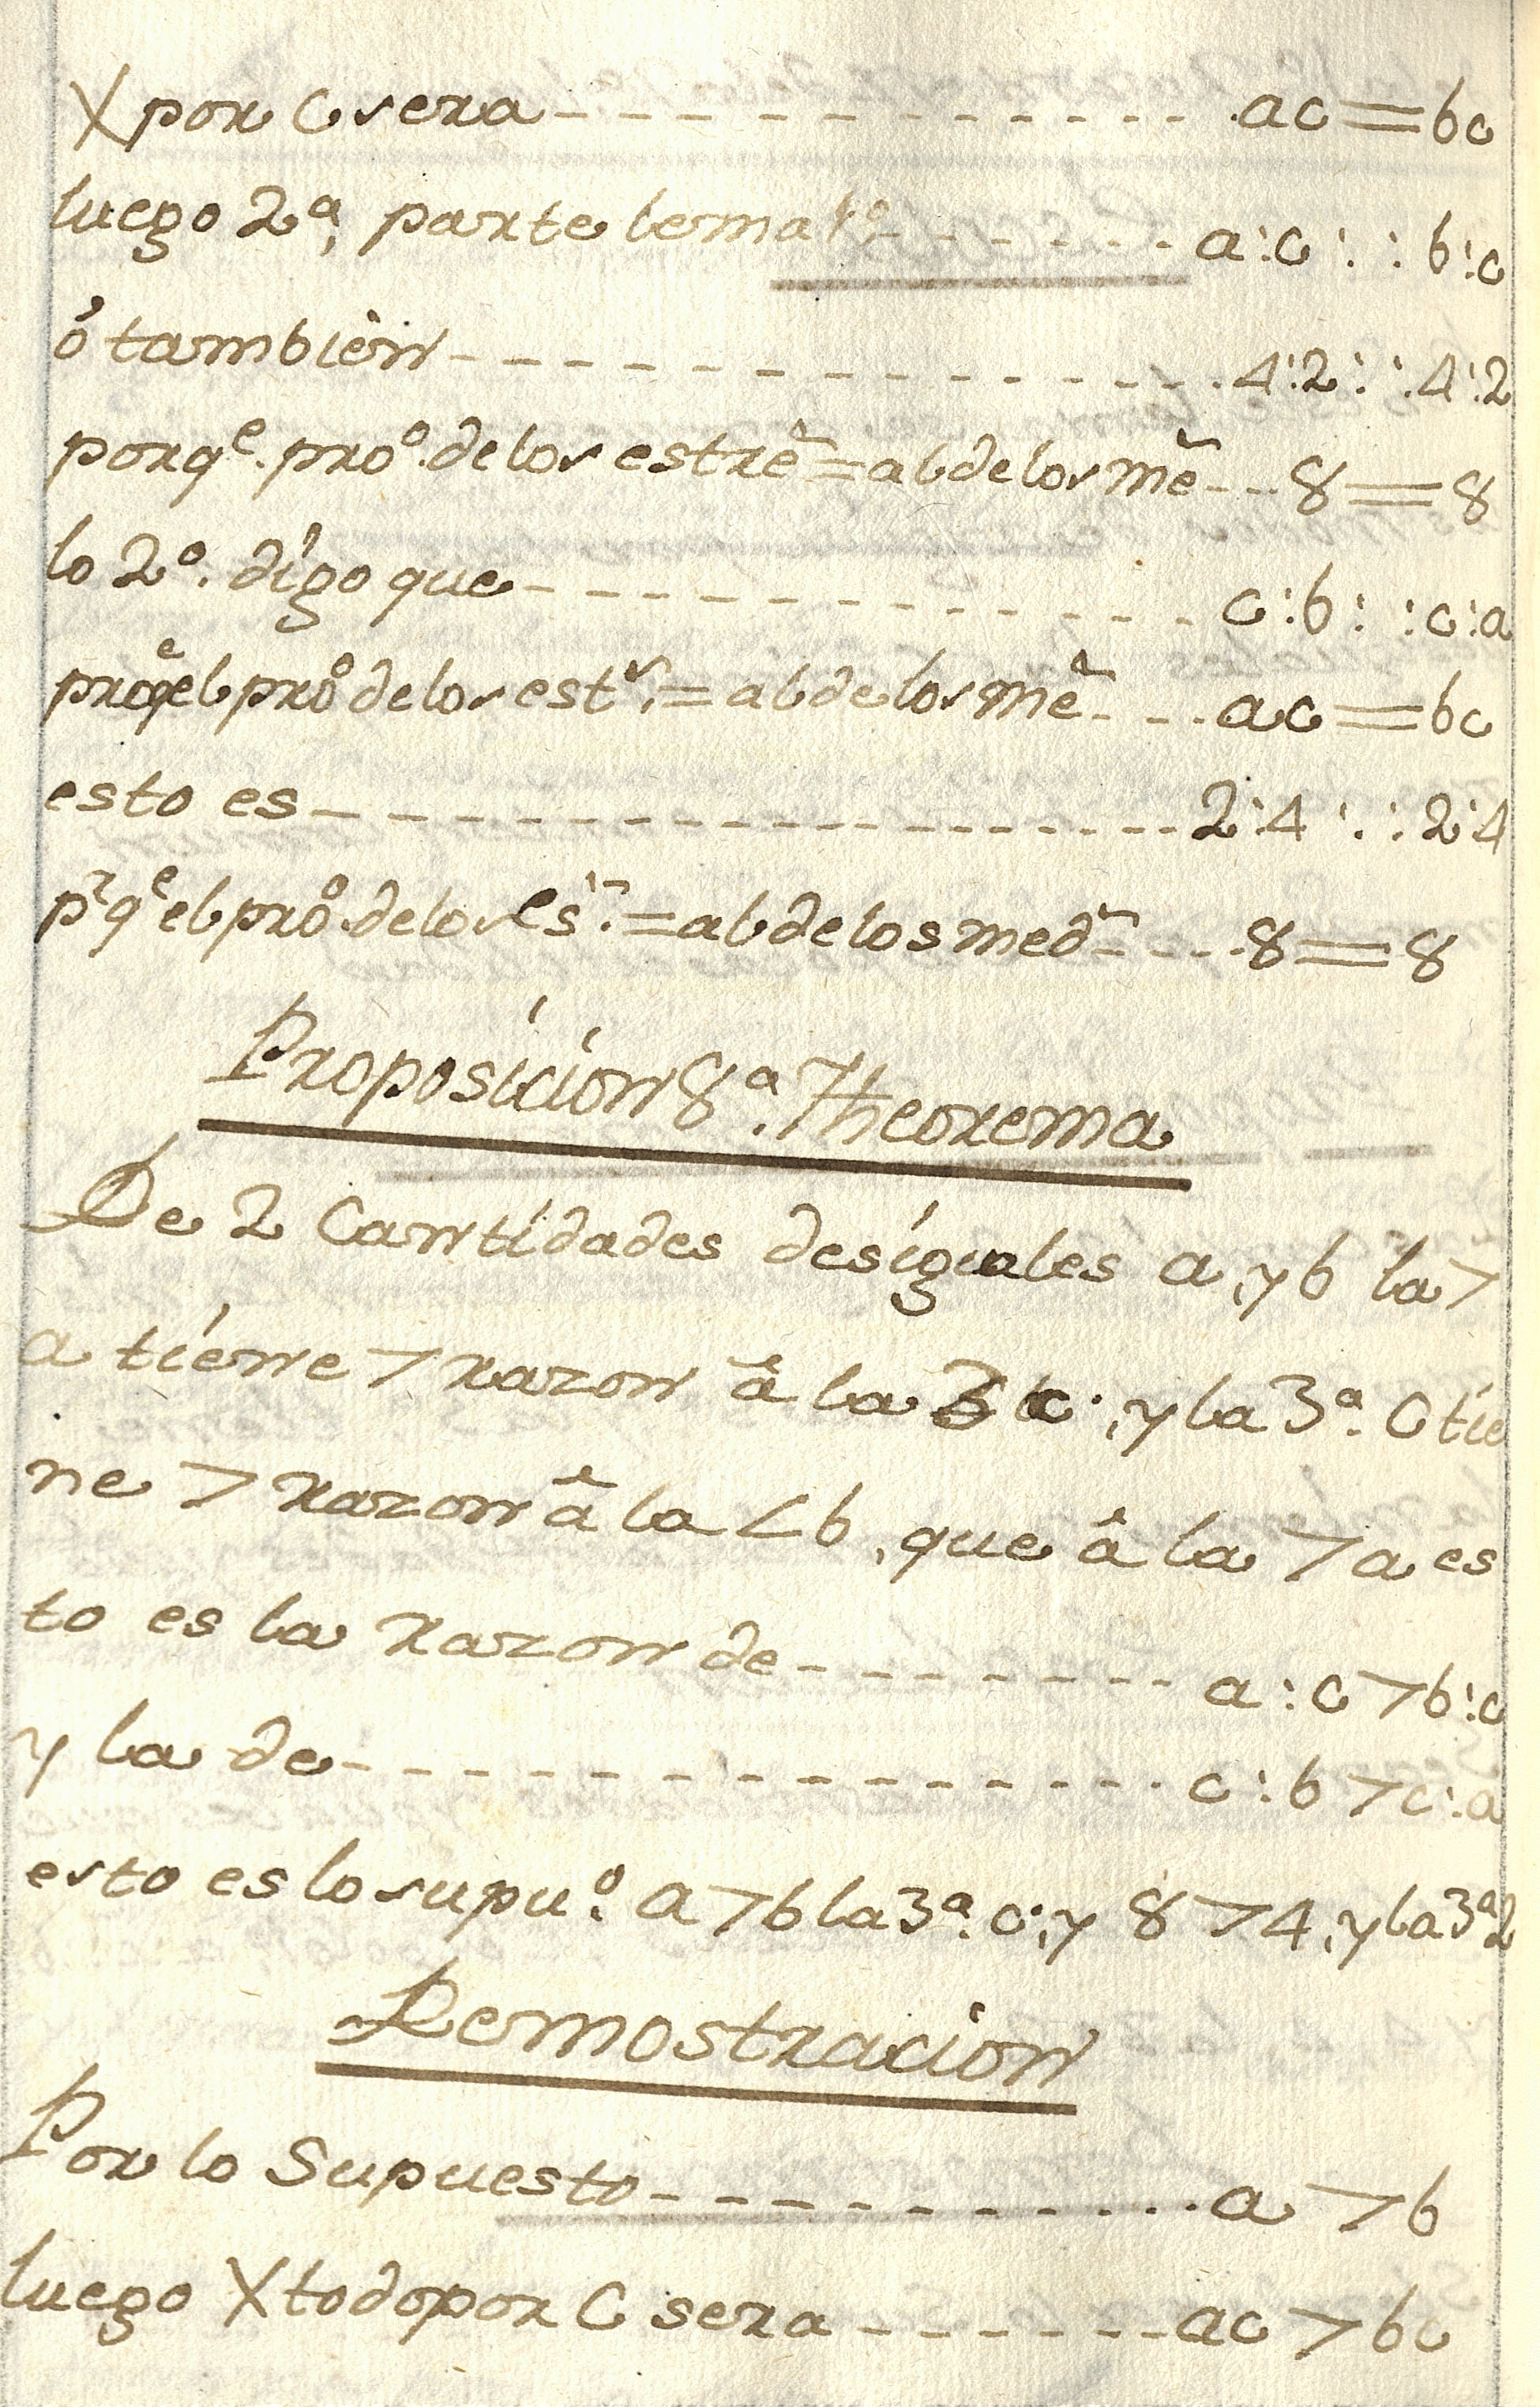 X por C sera - - - - - - - - - - - - - ac = bc
luego 2ª, parte lema 1º - - - - - - a:c :: b:c
ó tambien - - - - - - - - - - - - - - - 4:2 :: 4:2
porq^e. pro^o. de los estrẽ = al de los mẽ - - - 8 = 8
lo 2º. digo que - - - - - - - - - - - - c:b :: c:a
porq^e el pro^o de los est^s. = al de los mẽ - - - ac = bc
esto es - - - - - - - - - - - - - - - - - 2:4 :: 2:4
p^r q^e el pro^o. de los es^~. = al de los med^~ - - - - 8 = 8
Proposicion 8ª. Theorema
De 2 Cantidades desiguales a, y b la >
a tiene > razon â la c, y la 3ª. C tie
ne > razon â la < b, que â la > a es
to es la razon de - - - - - - - - a:c > b:c
y la de - - - - - - - - - - - - - - - c:b > c:a
esto es lo supu^o. a > b la 3ª. c, y 8 > 4, y la 3ª 2
Demostracion
Por lo Supuesto - - - - - - - - - - - a > b
luego X todo por C sera - - - - - - - ac > bc